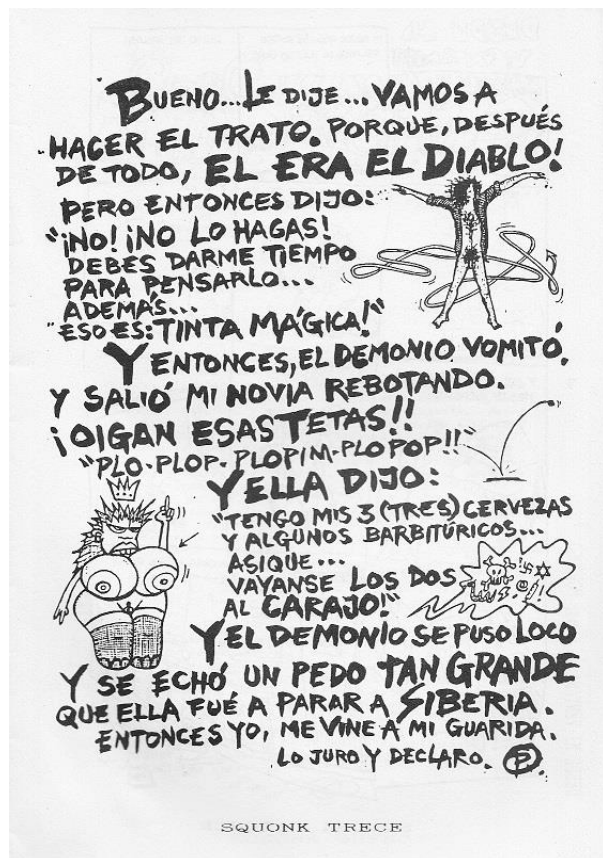 BUENO...LE DIJE...VAMOS A
HACER EL TRATO. PORQUE, DESPUÉS
DE TODO, EL ERA EL DIABLO!
PERO ENTONCES DIJO:
"¡NO! ¡NO LO HAGAS!
DEBES DARME TIEMPO
PARA PENSARLO...
ADEMÁS...
"ESO ES: TINTA MÁGICA!"
Y ENTONCES, EL DEMONIO VOMITÓ,
Y SALIÓ MI NOVIA REBOTANDO.
¡OIGAN ESAS TETAS!!
"PLO-PLOP-PLOPIM-PLOPOP!!"
Y ELLA DIJO:
"TENGO MIS 3 (TRES) CERVEZAS
Y ALGUNOS BARBITÚRICOS...
ASIQUE...
VAYANSE LOS DOS
AL CARAJO!"
Y EL DEMONIO SE PUSO LOCO
Y SE ECHÓ UN PEDO TAN GRANDE
QUE ELLA FUÉ A PARAR A SIBERIA.
ENTONCES YO, ME VINE A MI GUARIDA.
LO JURO Y DECLARO. P.
SQUONK TRECE